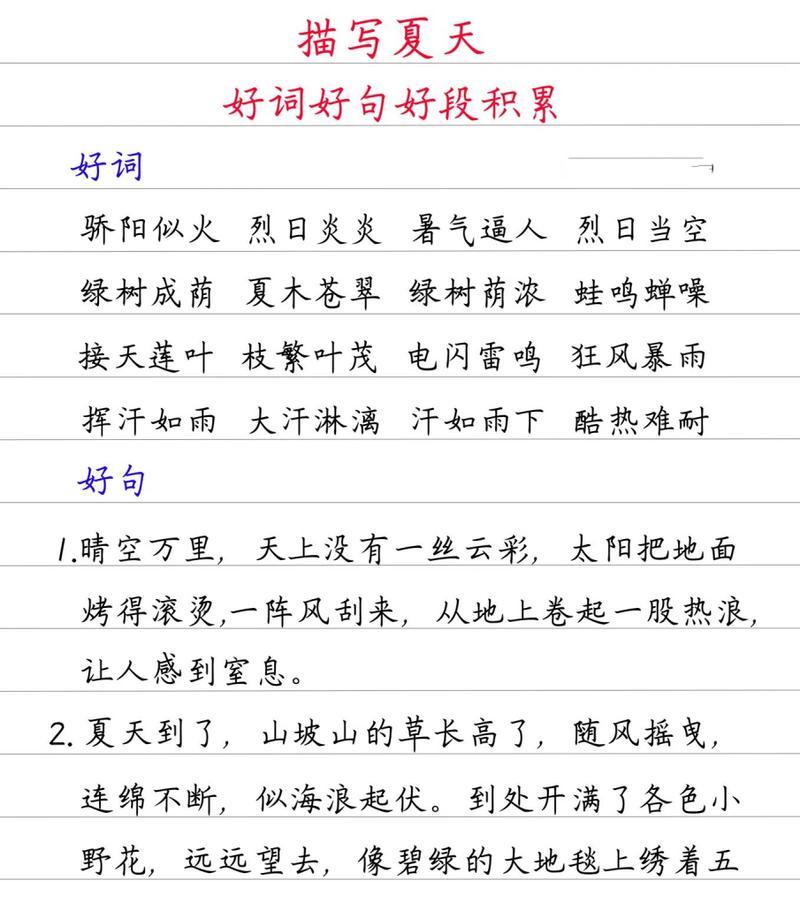 描写夏天
好词好句好段积累
好词
骄阳似火 烈日炎炎 暑气逼人 烈日当空
绿树成荫 夏木苍翠 绿树荫浓 蛙鸣蝉噪
接天莲叶 枝繁叶茂 电闪雷鸣 狂风暴雨
挥汗如雨 大汗淋漓 汗如雨下 酷热难耐
好句
1.晴空万里，天上没有一丝云彩，太阳把地面
烤得滚烫,一阵风刮来，从地上卷起一股热浪，
让人感到窒息。
2.夏天到了，山坡山的草长高了，随风摇曳，
连绵不断，似海浪起伏。到处开满了各色小
野花，远远望去，像碧绿的大地毯上绣着五